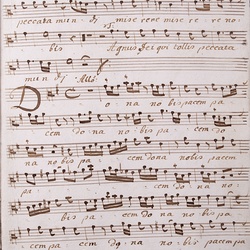 peccata mun di misere re mise re re no
bis Agnus Dei qui tollis peccata
mun di All:o
Do na nobis pacem
cem do na no bis pa cem do
na no bis pa cem dona nobis pacem
pa cem do
bis pa cem do na no
cem do na no bis pacem pa